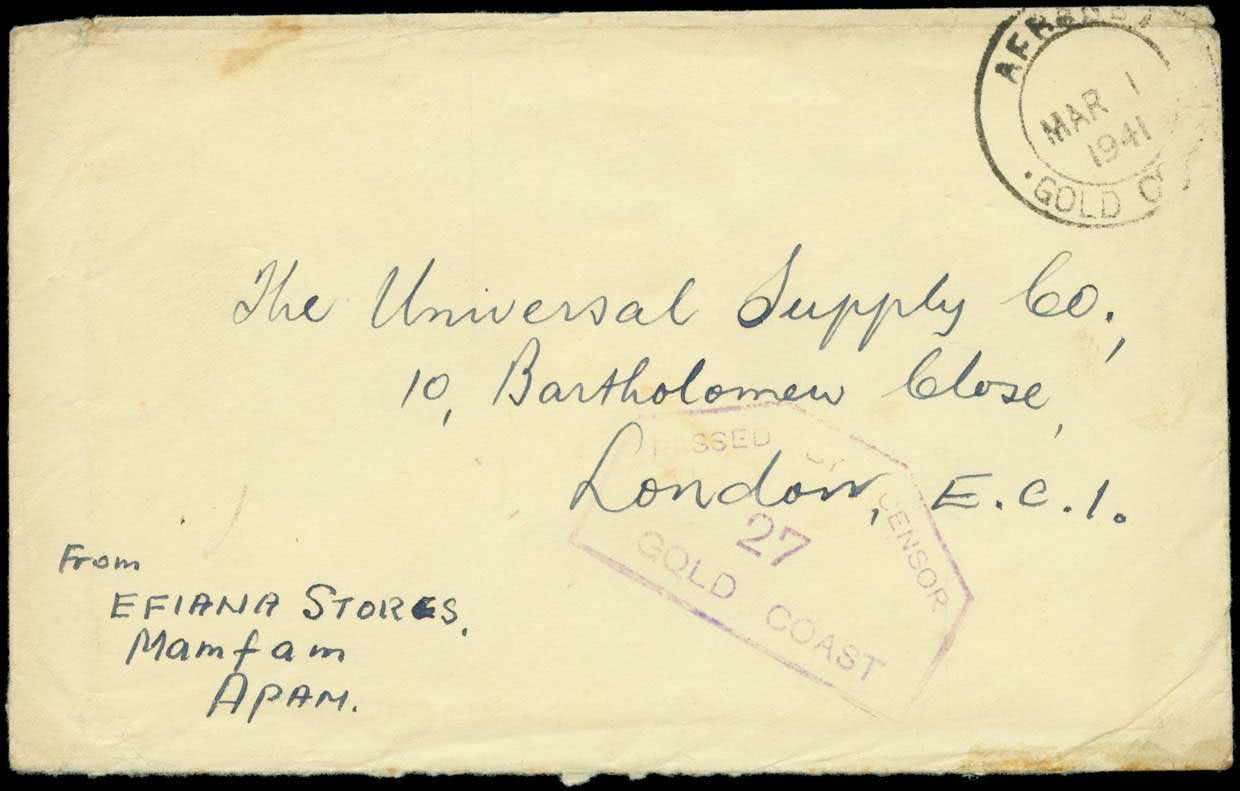 MAR 1
1941
GOLD
The Universal Supply Co.,
10, Bartholomew Close,
London, E.C.1.
PASSED BY CENSOR
27
GOLD COAST
From
EFIANA STORES,
Mamfam
APAM.